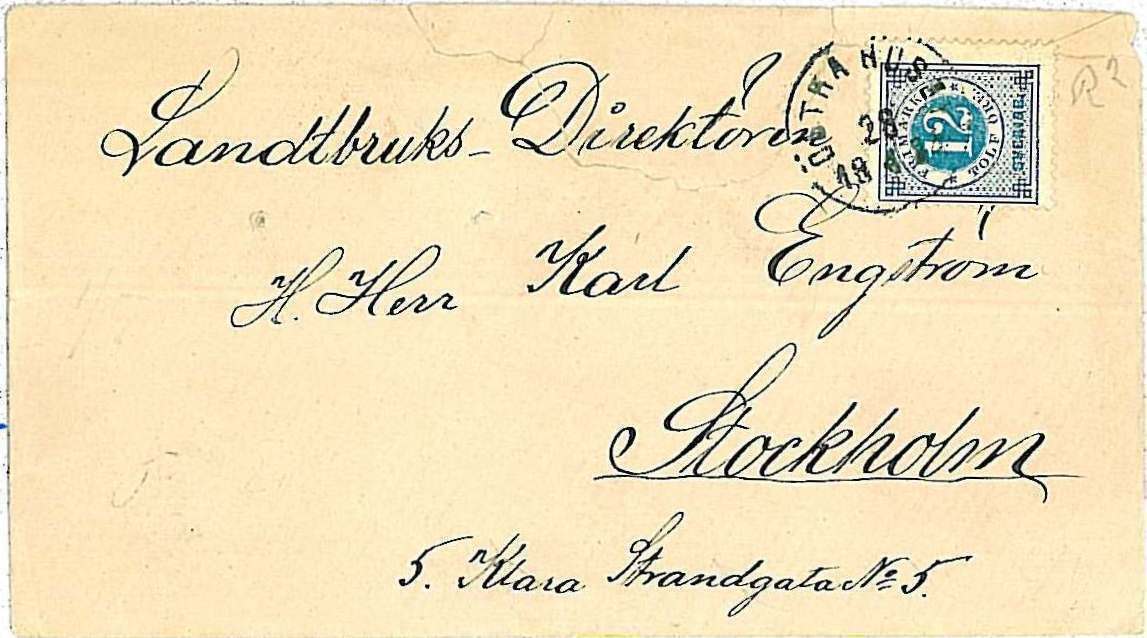 Landtbruks-Direktören
H. Herr Karl Engström
Stockholm
5. Klara Strandgata No 5.
FRIMÄRKE TOLF ÖRE
12
SVERIGE
28
18
R 2